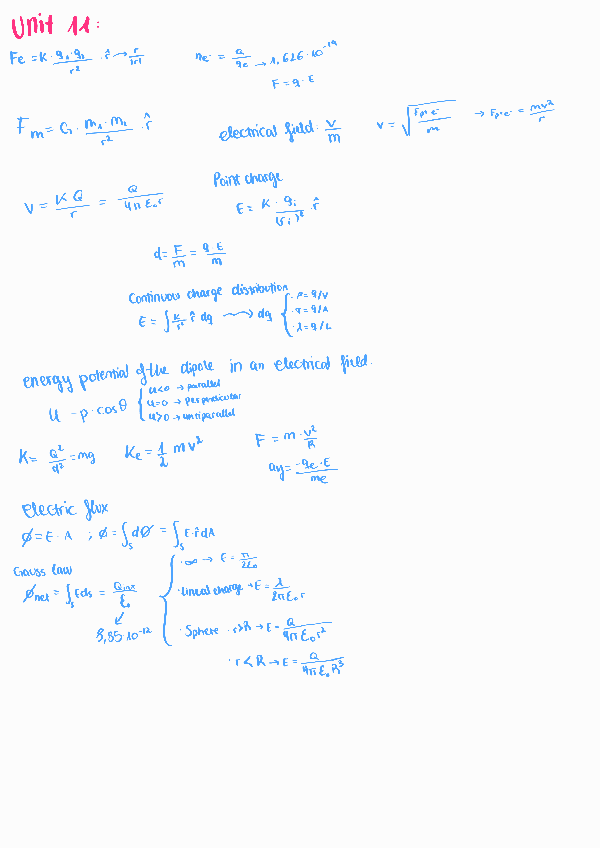 Unit 11:
Fe = K · q₁ · q₂ / r² · r̂ → r / |r|
ne⁻ = Q / qe → 1,626 · 10⁻¹⁹
F = q · E
Fm = G · m₁ · m₂ / r² · r̂
electrical field · V / m
v = √(Fp⁺e⁻ / m) → Fp⁺e⁻ = mv² / r
V = K Q / r = Q / 4π ε₀ r
Point charge
E = K · qi / (ri)² · r̂
d = F / m = q E / m
Continuous charge distribution
E = ∫ K / r² r̂ dq ⟿ dq { · ρ = q/V
· σ = q/A
· λ = q/L
energy potential of the dipole in an electrical field.
U - p · cos θ { U<0 → parallel
U=0 → perpendicular
U>0 → untiparallel
K = Q² / d² = mg
Ke = 1/2 m v²
F = m · v² / R
ay = -qe · E / me
electric flux
Ø = E · A ; Ø = ∫s dØ = ∫s E · r̂ dA
Gauss law
Ønet = ∫s E ds = Qint / ε₀
8,85 · 10⁻¹²
· ∞ → E = π / 2ε₀
· lineal charge → E = λ / 2π ε₀ r
· Sphere · r>R → E = Q / 4π ε₀ r²
· r < R → E = Q / 4π ε₀ R³